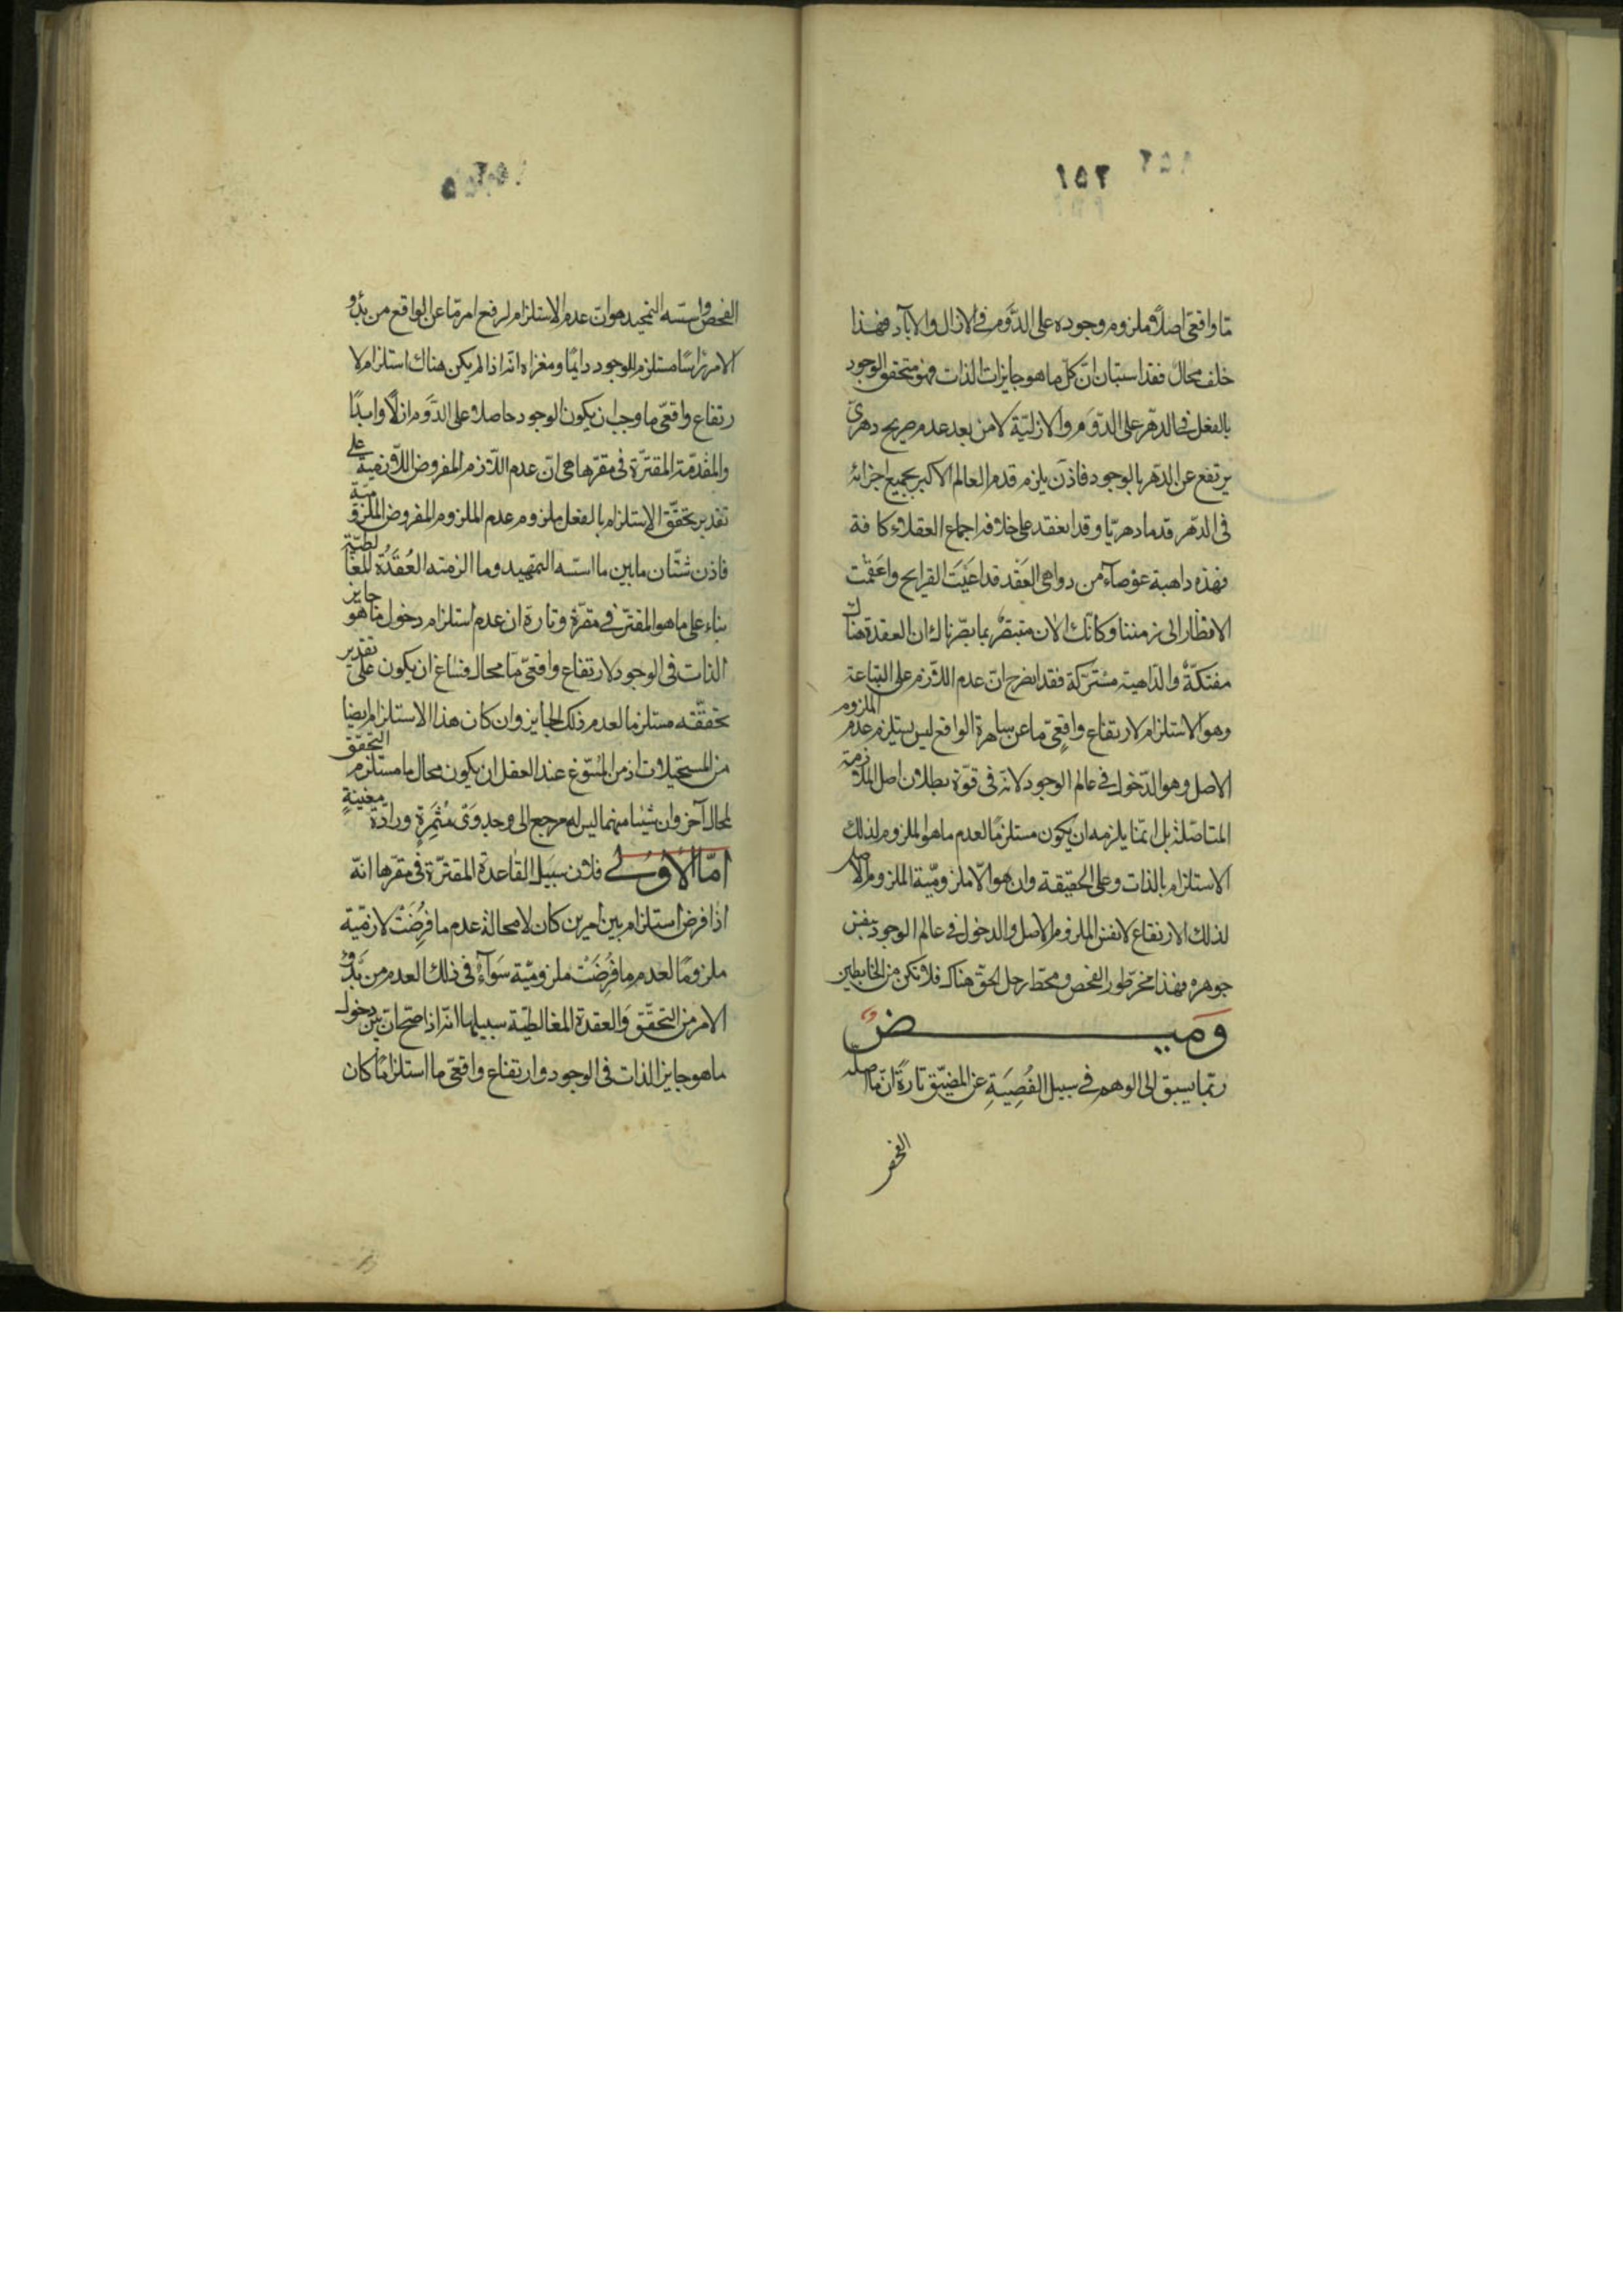 ٢٥٢
ما واقعى اصلا وملزوم وجوده على الدوام فى الازال والاباد فهذا
خلف محال فقد استبان ان كل ما هو جايز الذات فهو متحقق الوجود
بالفعل فى الدهر على الدوام والازلية لا من بعد عدم صريح دهرى
يرتفع عن الدهر بالوجود فاذن يلزم قدم العالم الاكبر بجميع اجزائه
فى الدهر قدما دهريا وقد انعقد على خلافه اجماع العقلاء كافة
فهذه داهية عوصاء من دواهى العقد قد اعيت القرايح واعقمت
الانظار الى زمننا وكانك الان متبصر بما بصرناك ان العقدة هناك
مفتكة والداهية مشتركة فقد انصرح ان عدم اللازم على التباعة
وهو الاستلزام لارتفاع واقعى ما عن ساهرة الواقع ليس يستلزم عدم الملزوم
الاصل وهو الدخول فى عالم الوجود لانه فى قوة بطلان اصل الملازمة
المتاصلة بل انما يلزمه ان يكون مستلزما لعدم ما هو الملزوم لذلك
الاستلزام بالذات وعلى الحقيقة وان هو الا ملزومية الملزوم الاصل
لذلك الارتفاع لا نفس الملزوم الاصل والدخول فى عالم الوجود بنفس
جوهره فهذا مخر طور الفحص ومحط رحل الحق هناك فلا تكن من الخابطين
وميض
ربما يسبق الى الوهم فى سبيل الفصية عن المضيق تارة ان ما اصله
الفحص
الفحص واسسه التمجيد هو ان عدم الاستلزام لرفع امر ما عن الواقع من بدو
الامر راسا مستلزم للوجود دايما ومغزاه انه اذا لم يكن هناك استلزام لا
رتفاع واقعى ما وجب ان يكون الوجود حاصلا على الدوام ازلا وابدا
والمقدمة المقترة فى مقرها هى ان عدم اللازم المفروض اللازمية على
تقدير تحقق الاستلزام بالفعل ملزوم عدم الملزوم المفروض الملزومية
فاذن شتان ما بين ما اسسه التمهيد وما الزمته العقدة المغالطية
بناء على ما هو المقتر فى مقره وتارة ان عدم استلزام دخول ما هو جايز
الذات فى الوجود لارتفاع واقعى ما محال فساغ ان يكون على تقدير
تحققه مستلزما لعدم ذلك الجايز وان كان هذا الاستلزام ايضا
من المستحيلات اذ من المسوغ عند العقل ان يكون محال ما مستلزم التحقق
لمحال آخر وان شيئا منهما ليس له مرجع الى جدوى مثمرة ورادة مغنية
اما الاول فلان سبيل القاعدة المقترة فى مقرها انه
اذا فرض استلزام بين امرين كان لا محالة عدم ما فرضت لازمية
ملزوما لعدم ما فرضت ملزومية سواء فى ذلك العدم من بدو
الامر من التحقق والعقدة المغالطية سبيلها انه اذا صح ان بين دخول
ما هو جايز الذات فى الوجود وارتفاع واقعى ما استلزاما كان